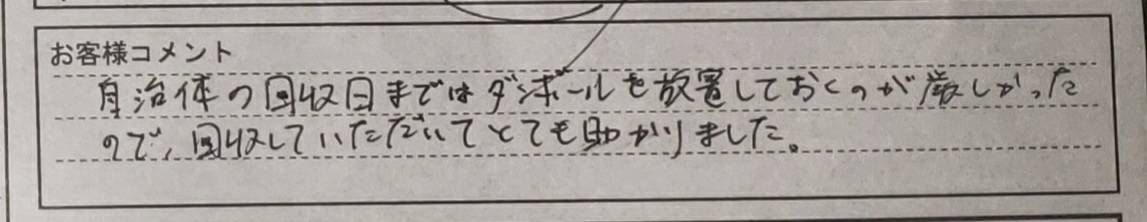 お客様コメント
自治体の回収日まではダンボールを放置しておくのが厳しかった
ので、回収していただいてとても助かりました。